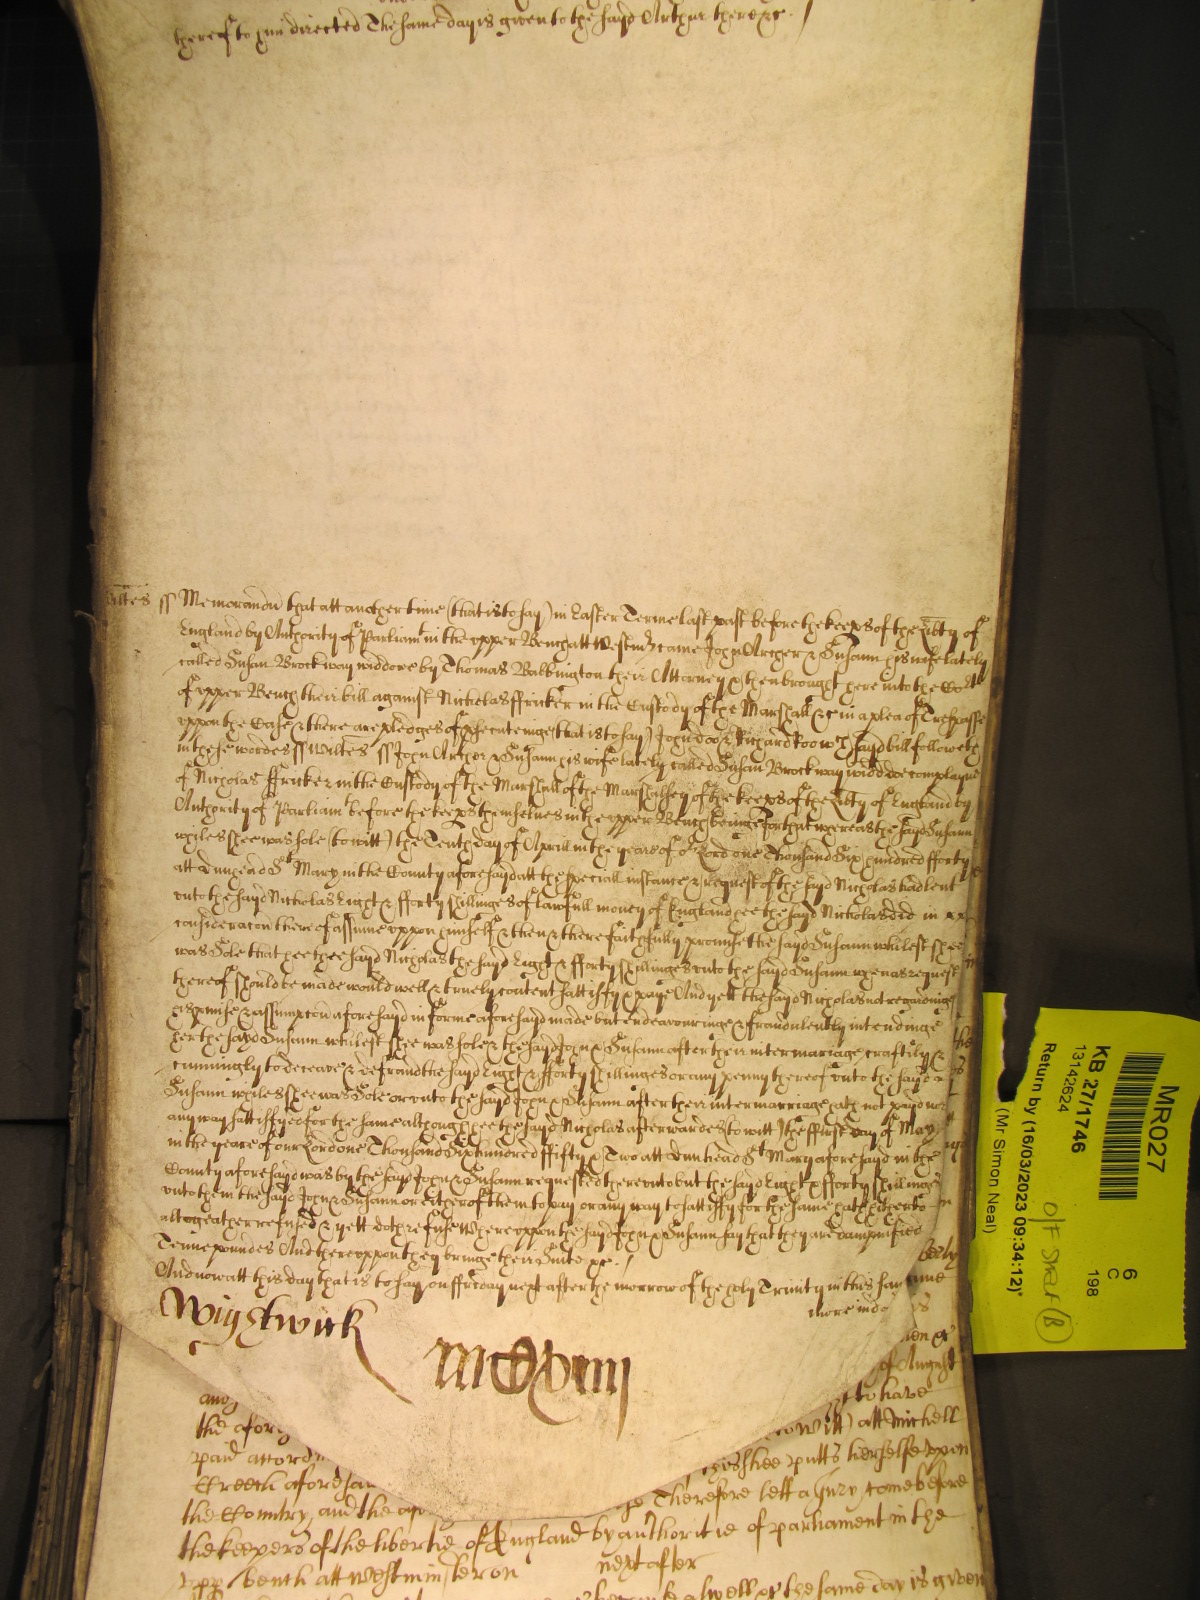 thereof to him directed The same day is given to the sayd Arthur there &c.
Wiltes ss Memorandu that att another time (that is to say) in Easter Terme last past before the keeps of the libty of
England by Authority of Parliamt in the upper Bench att Westmr came John Archer & Susann his wife lately
called Susan Brockway widdowe by Thomas Babbington their Attorney & then brought here into the Cort
of upper Bench their bill against Nicholas ffricker in the Custody of the Marshall &c in a plea of Trespasse
uppon the Case & there are pledges of psecuteinge (that is to say) John Doo & Richard Roo wch sayd bill followeth
in these wordes ss Wiltes ss John Archer & Susann his wife lately called Susan Brockway widdowe complayne
of Nicholas ffricker in the Custody of the Marshall of the Marshalsey of the keeps of the libty of England by
Authority of Parliamt before the keeps themselves in the upper Bench beinge for that whereas the sayd Susann
whiles shee was sole (to witt) the Tenth day of Aprill in the yeare of or Lord one Thousand Six hundred fforty
att Dunhead St Mary in the County aforesayd att the speciall instance & request of the sayd Nicholas had lent
unto the sayd Nicholas Eight & fforty shillinges of lawfull money of England hee the sayd Nicholas did in
consideracon thereof assume uppon himself & then & there faithfully promise the sayd Susann whilest shee
was Sole that hee the sayd Nicholas the sayd Eight & fforty shillinges unto the sayd Susann when as request
thereof should be made would well & truely content sattisfy & paye And yett the sayd Nicholas not regardinge
his pmise & assumpcon aforesayd in forme aforesayd made but endeavouringe & fraudulently intendinge
her the sayd Susann whilest shee was sole & the sayd John & Susann after their intermariage craftily &
cunningly to deceave & defraud the sayd Eight & fforty shillinges or any penny thereof unto the sayd
Susann whiles shee was Sole or unto the sayd John & Susann after their intermarriage hath not payd nor
any way sattisfyed for the same although hee the sayd Nicholas afterwardes (to witt) the ffirst day of May
in the yeare of our Lord one Thousand Six hundred ffifty & Two att Dunhead St Mary aforesayd in the
County aforesayd was by the sayd John & Susann requested thereunto but the sayd Eight & fforty shillinges
unto them the sayd John & Susann or either of them to pay or any way to sattisfy for the same hath hitherto
altogeather refused & yett doth refuse Whereuppon the sayd John & Susann say that they are dampnified
Tenne poundes And thereuppon they bringe their Suite &c.
And now att this day that is to say on ffriday next after the morrow of the holy Trinity in this same
Wightwick
MCDxviiij
of August
to have
the afore
(to witt) att Mitchell
paid accord
shee putts herselfe uppon
Creech aforesa
the Country, and the
Therefore lett a Jury come before
the keepers of the libertie of England by authoritie of parliament in the
upp bench att Westminster on next after
aswell &c the same day is given
MR027
KB 27/1746
13142624
Return by (16/03/2023 09:34:12)"
(Mr Simon Neal)
6
C
198
O/S Shelf (B)